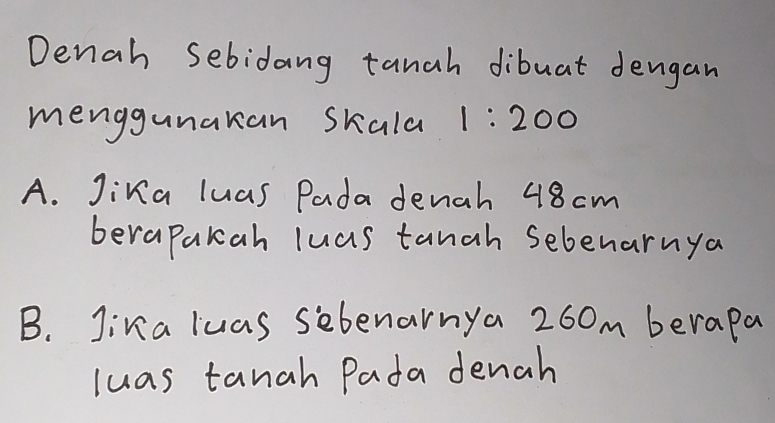 Denah Sebidang tanah dibuat dengan
menggunakan Skala 1 : 200
A. Jika luas Pada denah 48cm
berapakah luas tanah Sebenarnya
B. Jika luas Sebenarnya 260m berapa
luas tanah Pada denah